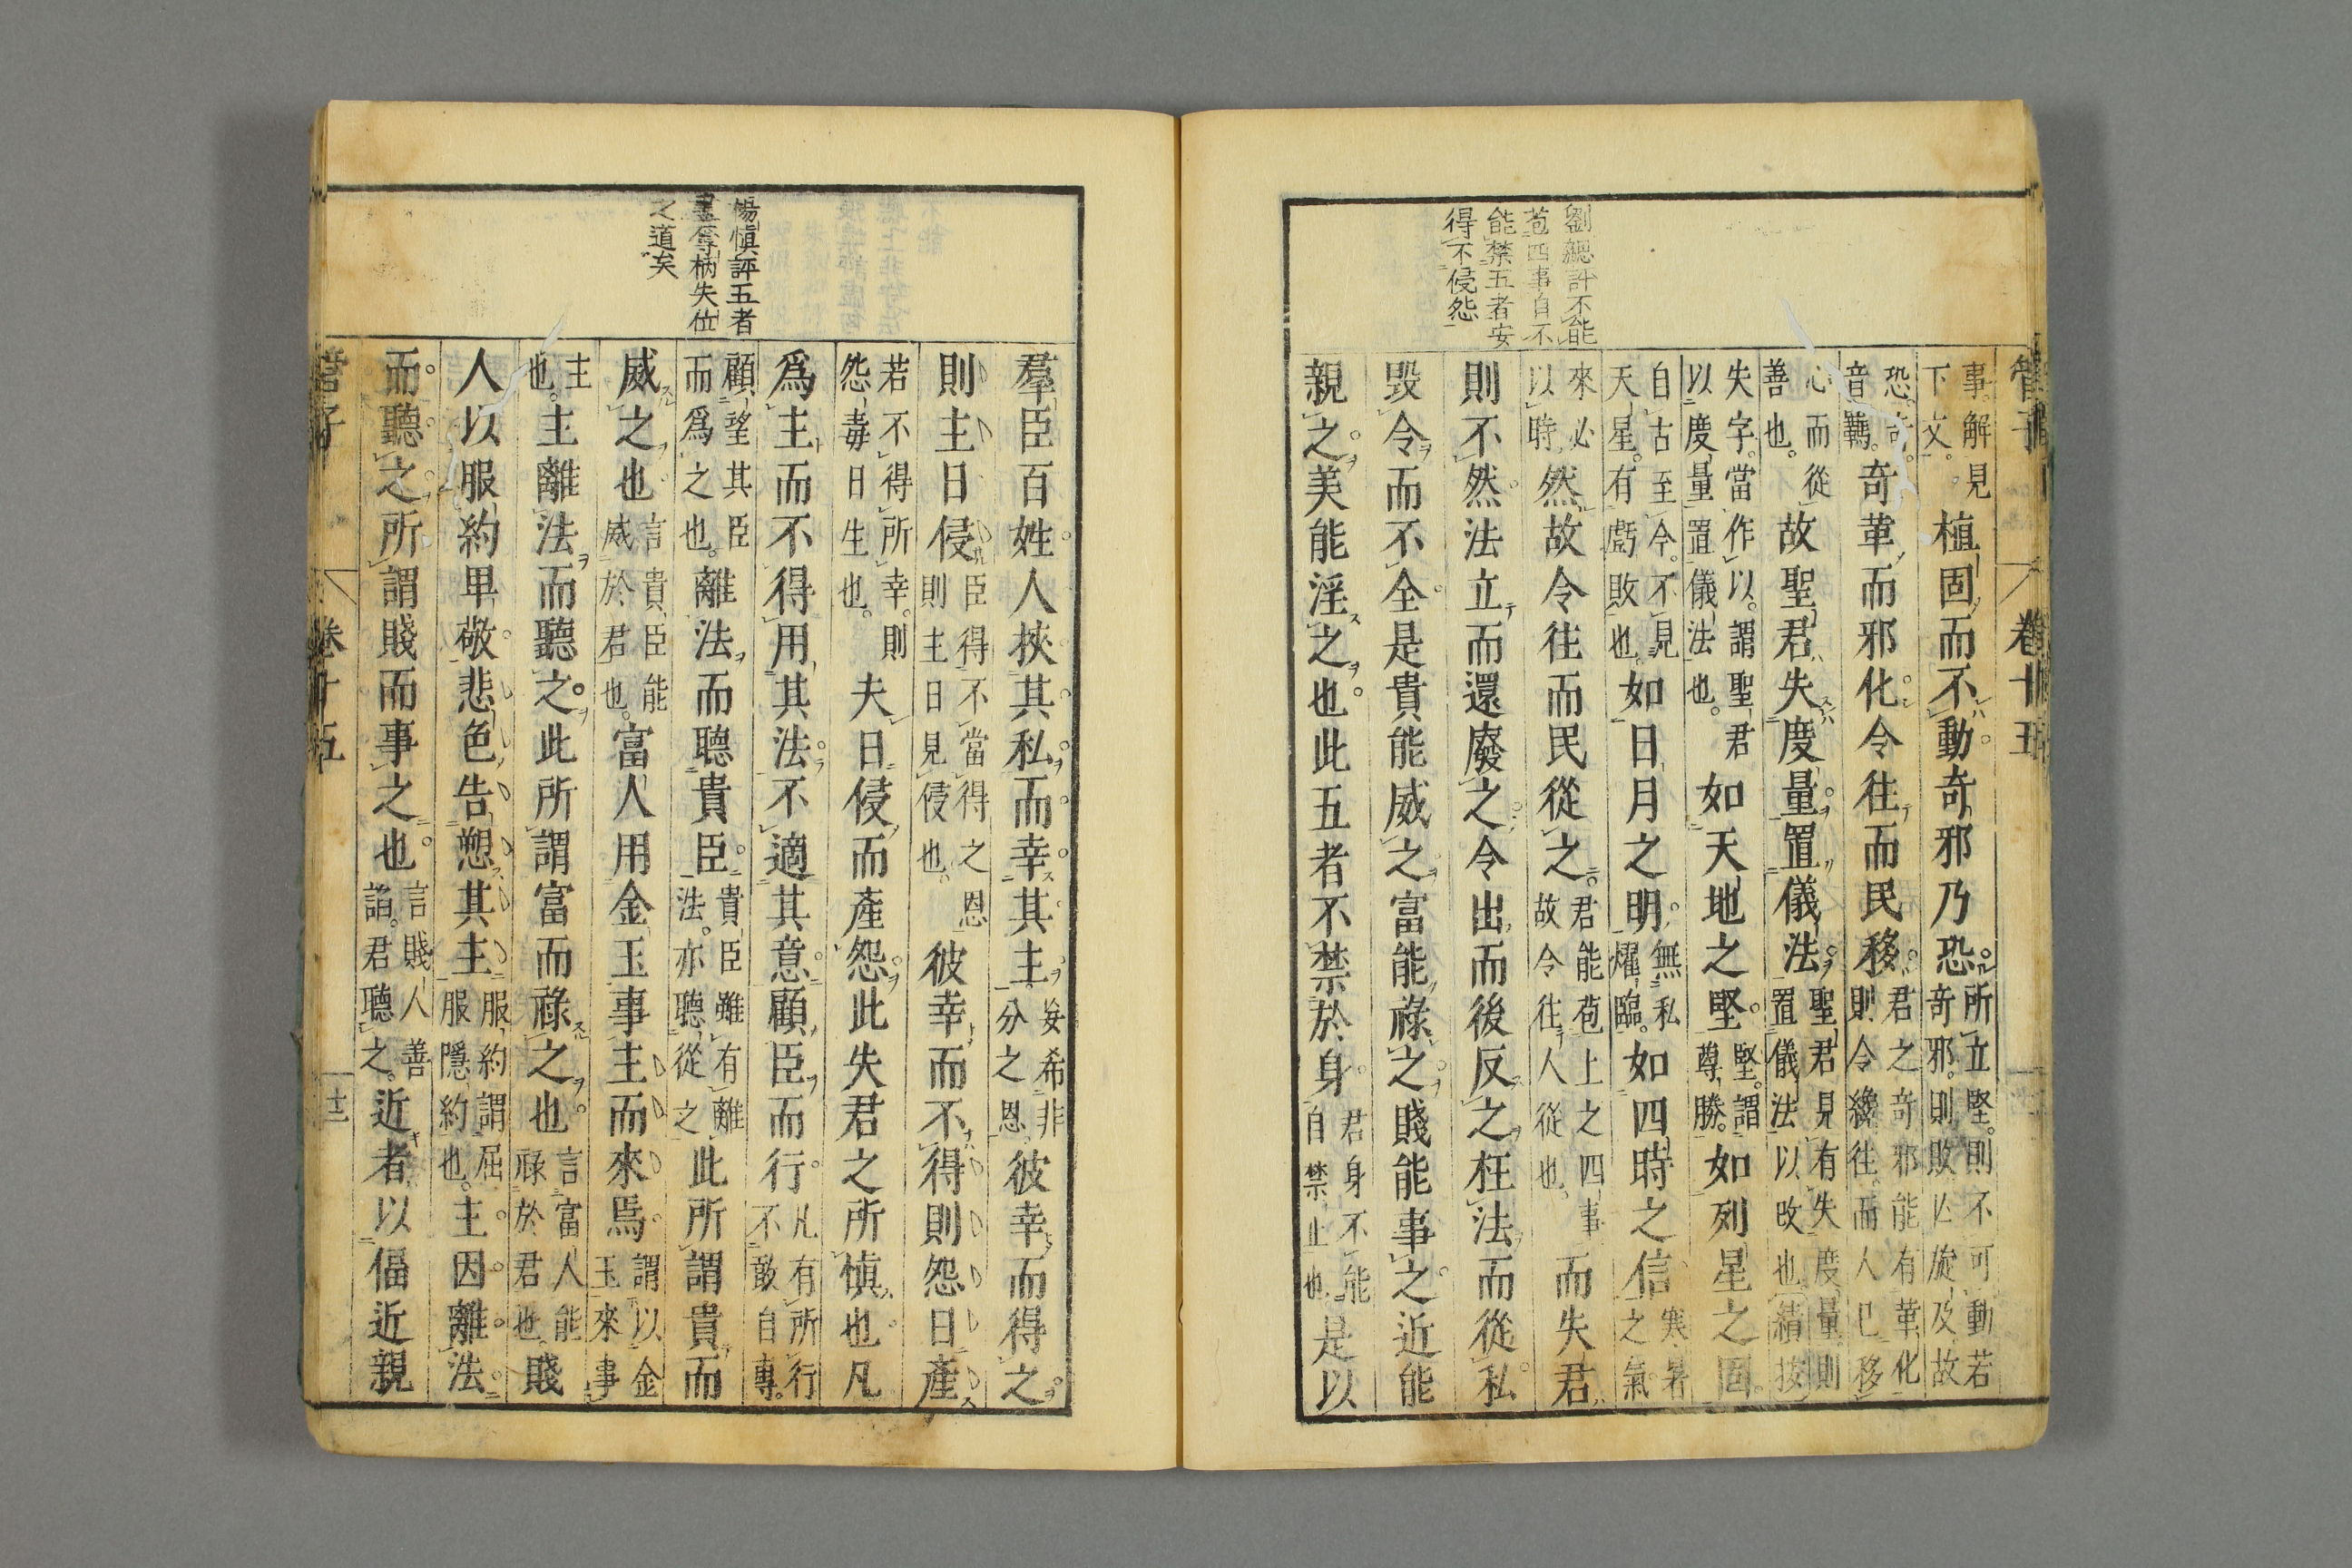 管子
卷十五
劉績評不能
苞四事自不
能禁五者安
得不侵怨
事解見
下文
植固而不動奇邪乃恐
所立堅則不可動若
奇邪則敗亡旋及故
恐奇
音羈
奇革而邪化令往而民移
君之奇邪能有革化
則令纔往而人已移
心而從
善也
故聖君失度量置儀法
聖君見有失度量則
置儀法以改也績按
失字當作以謂聖君
以度量置儀法也
如天地之堅
堅謂
尊勝
如列星之固
自古至今不見
天星有虧敗也
如日月之明
無私
燿臨
如四時之信
寒暑
之氣
來必
以時
然故令往而民從之
君能苞上之四事
故令往人從也
而失君
則不然法立而還廢之令出而後反之枉法而從私
毀令而不全是貴能威之富能祿之賤能事之近能
親之美能淫之也此五者不禁於身
君身不能
自禁止也
是以
羣臣百姓人挾其私而幸其主
妄希非
分之恩
彼幸而得之
則主日侵
臣得不當得之恩
則主日見侵也
彼幸而不得則怨日產
若不得所幸則
怨毒日生也
夫日侵而產怨此失君之所慎也凡
爲主而不得用其法不適其意顧臣而行
凡有所行
不敢自專
顧望其臣
而爲之也
離法而聽貴臣
貴臣雖有離
法亦聽從之
此所謂貴而
威之也
言貴臣能
威於君也
富人用金玉事主而來焉
謂以金
玉來事
主
也
主離法而聽之此所謂富而祿之也
言富人能
祿於君也
賤
人以服約卑敬悲色告愬其主
服約謂屈
服隱約也
主因離法
而聽之所謂賤而事之也
言賤人善
諂君聽之
近者以偪近親
楊慎評五者
畫奪柄失位
之道矣
管子
卷十五
十三